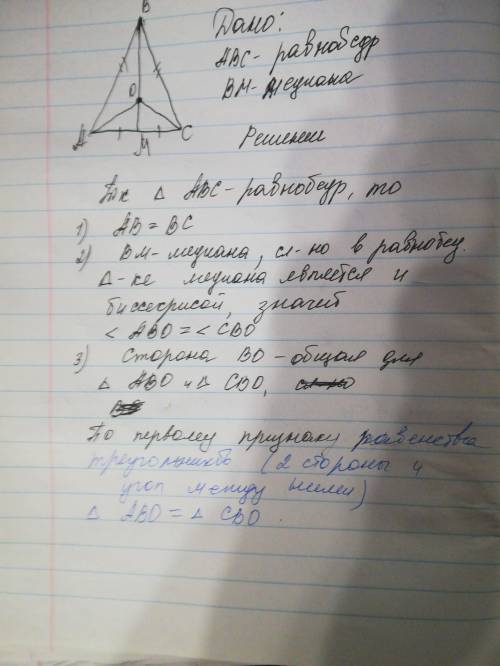 B
Дано:
ABC - равнобедр
BM - медиана
O
A
C
M
Решение
Так △ ABC - равнобедр, то
1) AB = BC
2) BM - медиана, сл-но в равнобед.
△-ке медиана является и
биссектрисой, значит
< ABO = < CBO
3) Сторона BO - общая для
△ ABO и △ CBO,
По первому признаку равенства
треугольников (2 стороны и
угол между ними)
△ ABO = △ CBO.